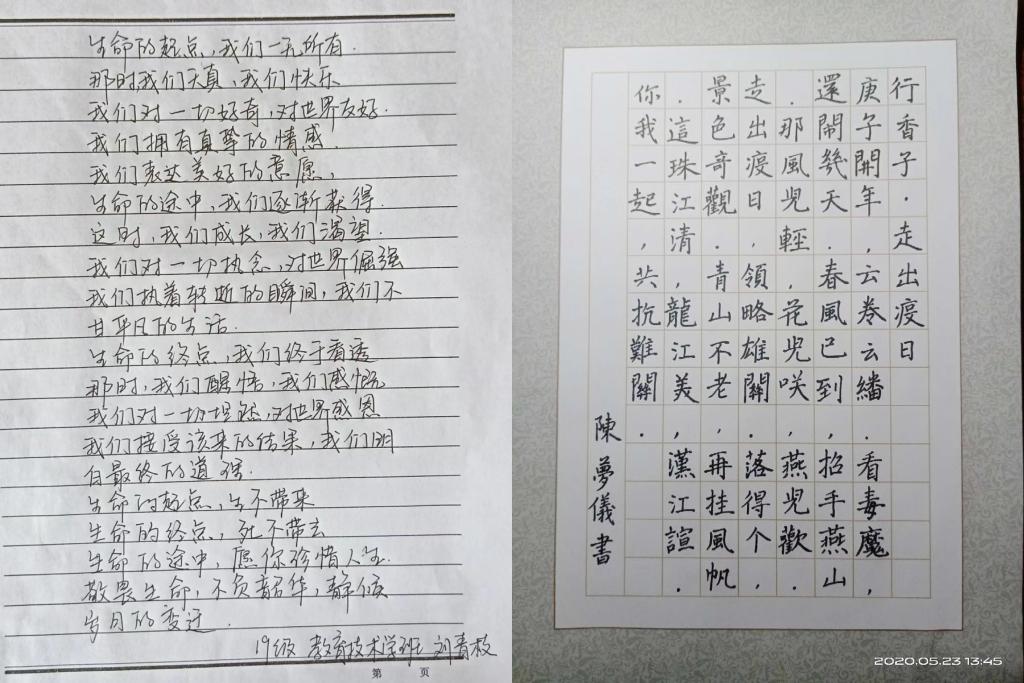 生命的起点,我们一无所有.
那时我们天真,我们快乐
我们对一切好奇,对世界友好.
我们拥有真挚的情感.
我们表达美好的意愿,
生命的途中,我们逐渐获得.
这时,我们成长,我们渴望.
我们对一切执念,对世界倔强
我们执着转逝的瞬间,我们不
甘平凡的生活.
生命的终点,我们终于看透
那时,我们醒悟,我们感慨
我们对一切坦然,对世界感恩
我们接受该来的结果,我们明
白最终的道理.
生命的起点,生不带来
生命的终点,死不带去
生命的途中,愿你珍惜人生.
敬畏生命,不负韶华,静候
岁月的变迁.
19级 教育技术学班 刘青枝
第 页
行香子·走出疫日
庚子開年,云卷云繙.看毒魔,
還鬧幾天.春風已到,招手燕山
.那風児輕,花児咲,燕児歡.
走出疫日,領略雄關.落得个
景色奇觀.青山不老,再挂風帆
.這珠江清,龍江美,漢江諠.
你我一起,共抗難關.
陳夢儀書
2020.05.23 13:45